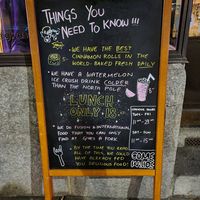 THINGS YOU
NEED TO KNOW !!!
- WE HAVE THE BEST
CINNAMON ROLLS IN THE
WORLD - BAKED FRESH DAILY
- WE HAVE A WATERMELON
ICE CRUSH DRINK COLDER
THAN THE NORTH POLE
LUNCH
ONLY 18.-
- WE DO FUSION & INTERNATIONAL
FOOD THAT YOU CAN ONLY
FIND AT GIVES A FORK
- BY THE TIME YOU READ
ALL OF THIS, WE COULD
HAVE ALREADY FED
YOU DELICIOUS FOOD!
TUE - FRI
SAT - SUN
COME
INSIDE